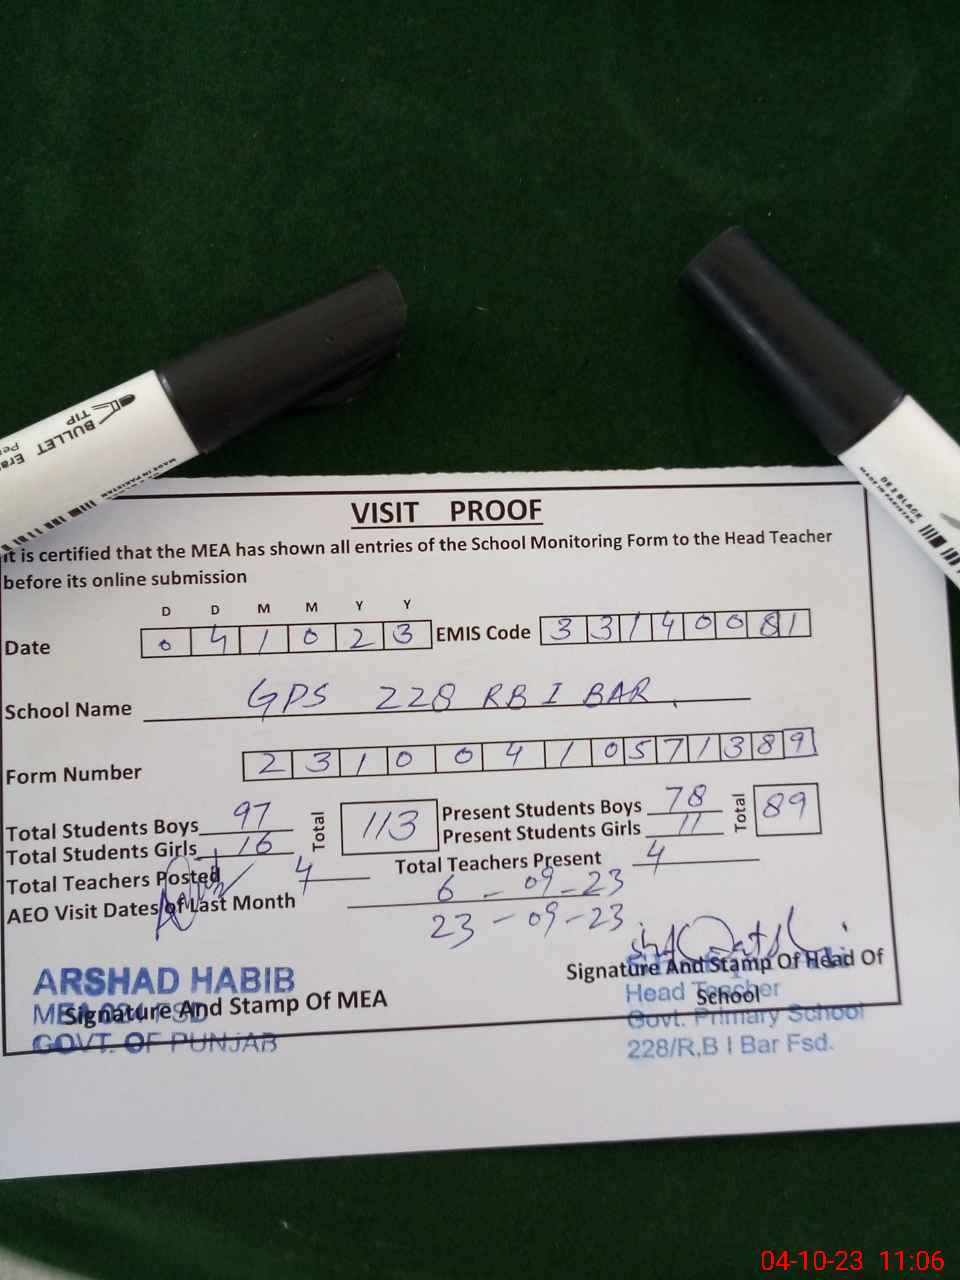 BULLET
TIP
MADE IN PAKISTAN
BLACK
MADE IN PAKISTAN
VISIT PROOF
It is certified that the MEA has shown all entries of the School Monitoring Form to the Head Teacher
before its online submission
D D M M Y Y
Date 0 4 1 0 2 3 EMIS Code 3 3 1 4 0 0 8 1
School Name GPS 228 RB I BAR
Form Number 2 3 1 0 0 4 1 0 5 7 1 3 8 9
Total Students Boys 97 Total 113 Present Students Boys 78 Total 89
Total Students Girls 16 Present Students Girls 11
Total Teachers Posted 4 Total Teachers Present 4
AEO Visit Dates of Last Month 6 - 09 - 23
23 - 09 - 23
ARSHAD HABIB
Signature And Stamp Of MEA
GOVT. OF PUNJAB
Signature And Stamp Of Head Of
School
Head Teacher
Govt. Primary School
228/R,B I Bar Fsd.
04-10-23 11:06